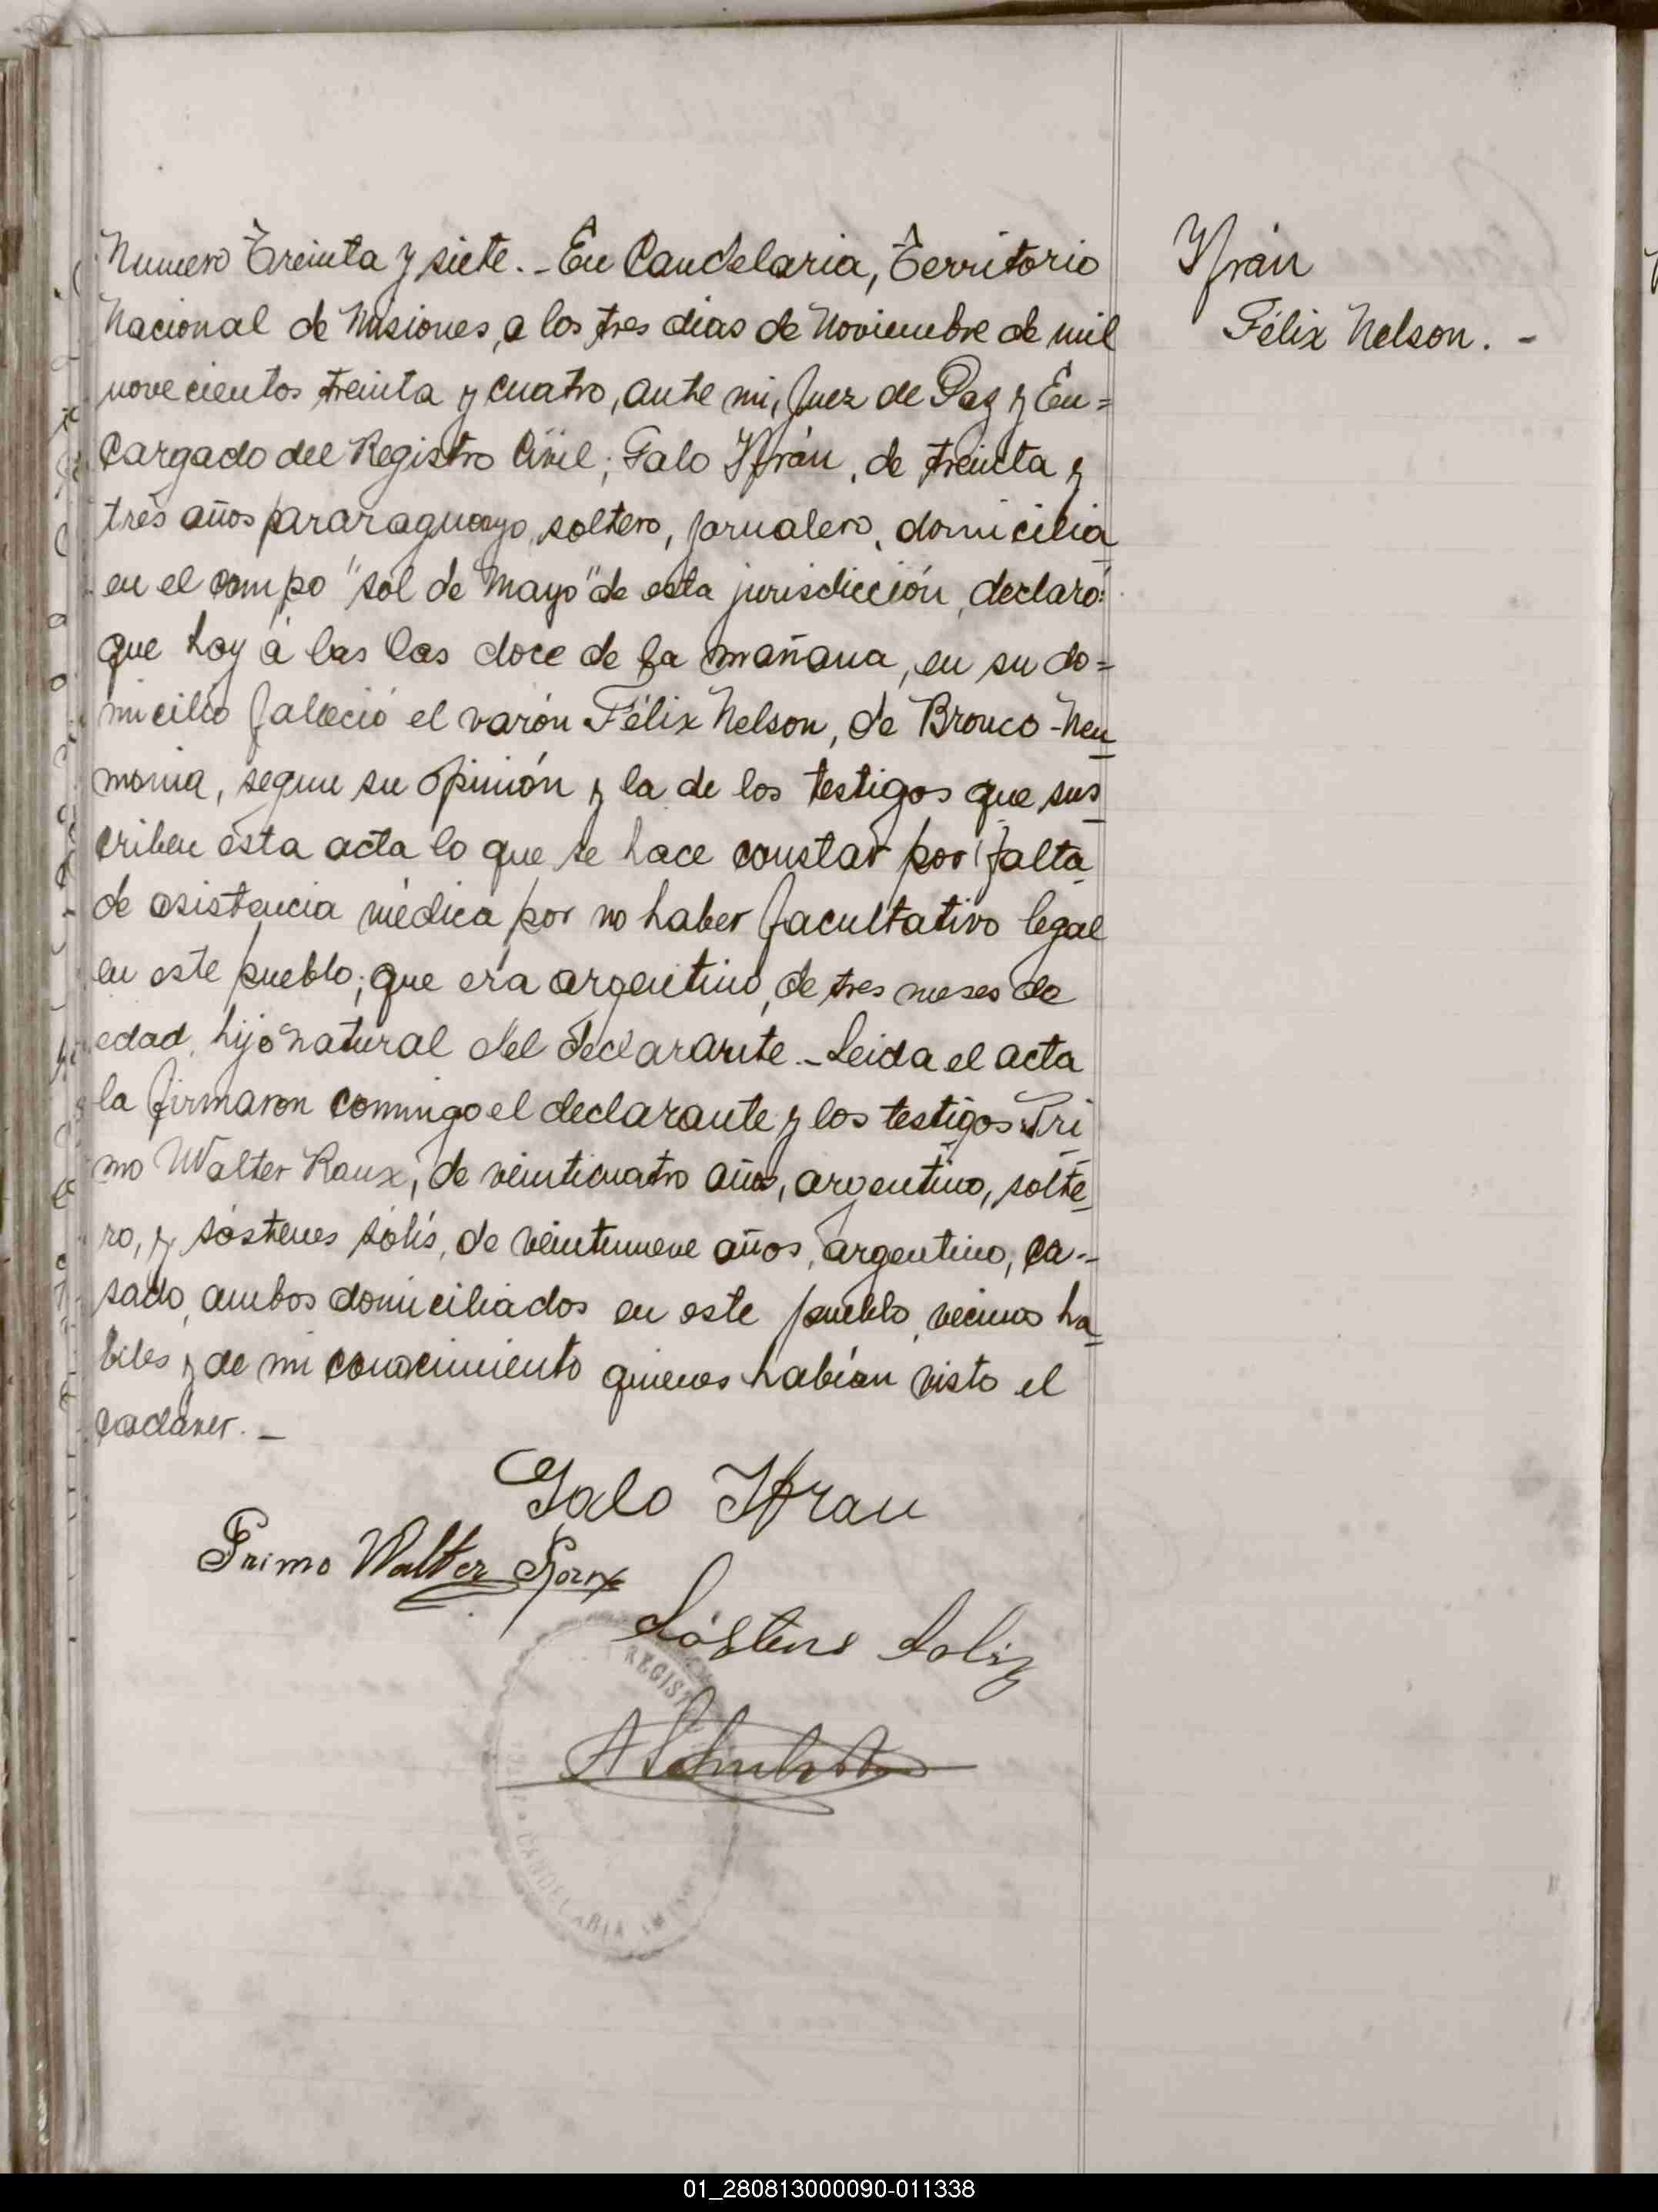 Numero Treinta y siete.- En Candelaria, Territorio
Nacional de Misiones, a los tres dias de Noviembre de mil
novecientos treinta y cuatro, ante mi, Juez de Paz y En=
cargado del Registro Civil; Galo Yfrán, de treinta y
tres años pararaguayo, soltero, jornalero, domicilia
en el campo "Sol de Mayo" de esta jurisdicción, declaró:
que hoy á las las doce de la mañana, en su do=
micilio falleció el varón Félix Nelson, de Bronco-Neu
monia, segun su opinión y la de los testigos que sus
criben ésta acta lo que se hace constar por falta
de asistencia médica por no haber facultativo legal
en este pueblo; que era argentino, de tres meses de
edad, hijo natural del declarante.- Leida el acta
la firmaron conmigo el declarante y los testigos Pri
mo Walter Roux, de veinticuatro años, argentino, solte
ro, y Sóstenes Sólis, de veintinueve años, argentino, ca-
sado, ambos domiciliados en este pueblo, vecinos ha
biles y de mi conocimiento quienes habían visto el
cadáver.-
Yfrán
Félix Nelson.-
Galo Yfran
Primo Walter Roux
Sóstene Soliz
REGIST
CANDELARIA
01_280813000090-011338